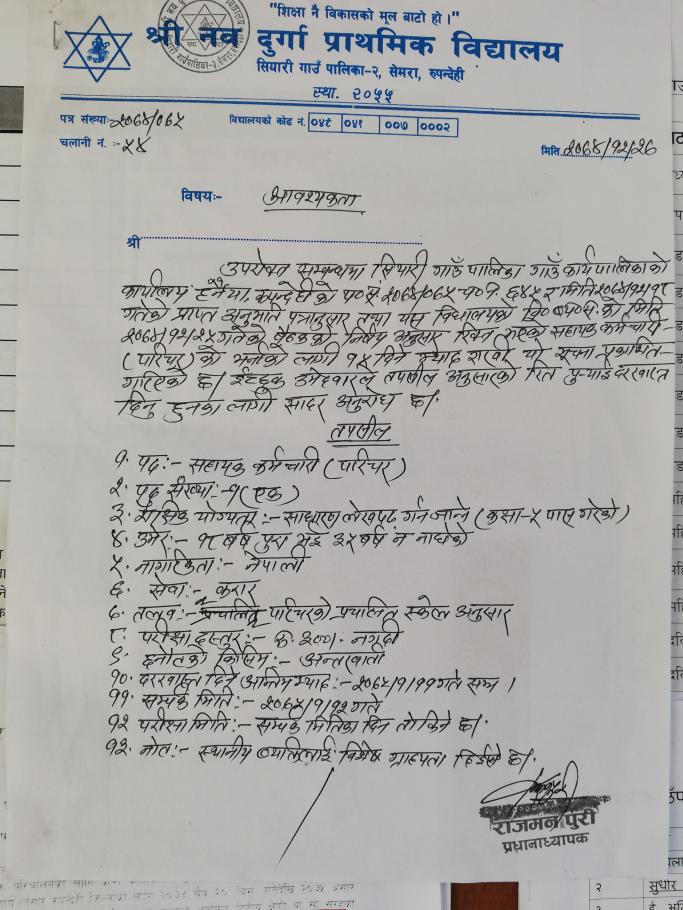 "शिक्षा नै विकासको मूल बाटो हो ।"
श्री नव दुर्गा प्राथमिक विद्यालय
सियारी गाउँ पालिका-२, सेमरा, रुपन्देही
स्था. २०५५
पत्र संख्याः २०७४/०७५
विद्यालयको कोड नं. ०४९ ०४१ ००७ ०००२
चलानी नं. :- ५४
मिति २०७४/१२/२६
विषयः- आवश्यकता
श्री
उपरोक्त सम्बन्धमा सियारी गाउँ पालिका गाउँ कार्यपालिकाको
कार्यालय हर्नैया, रुपन्देही को प०सं २०७४/०७५ च०नं ६४५ र मिति २०७४/१२/१९
गतेको प्राप्त अनुमति पत्रानुसार तथा यस विधालयको वि०व्य०स० को मिति
२०७४/१२/२५ गतेको बैठकको निर्णय अनुसार रिक्त रहेको सहायक कर्मचारी-
(परिचर) को भर्नाको लागी १५ दिने म्याद राखी यो सूचना प्रकाशित-
गरिएको छ। ईच्छुक उमेद्वारले तपसील अनुसारको रित पुर्‍याई दरखास्त
दिनु हुनका लागी सादर अनुरोध छ।
तपसील
१. पद:- सहायक कर्मचारी (परिचर)
२. पद संख्या:- १ (एक)
३. शैक्षिक योग्यता:- साधारण लेखपढ गर्न जान्ने (कक्षा-५ पास गरेको)
४. उमेर:- १८ वर्ष पुरा भई ३५ वर्ष न नाघेको
५. नागरिकता:- नेपाली
६. सेवा:- करार
७. तलव:- परिचरको प्रचलित स्केल अनुसार
८. परीक्षा दस्तुर:- रु. ३००।- नगदी
९. छनौटको किसिम:- अन्तरवार्ता
१०. दरखास्त दिने अन्तिम म्याद:- २०७५/१/११ गते सम्म।
११. सम्पर्क मिति:- २०७५/१/१२ गते
१२ परीक्षा मिति:- सम्पर्क मितिका दिन तोकिने छ।
१३. नोट:- स्थानीय व्यक्तिलाई विशेष ग्राह्यता दिईने छ।
राजमन पुरी
प्रधानाध्यापक
२
सुधीर